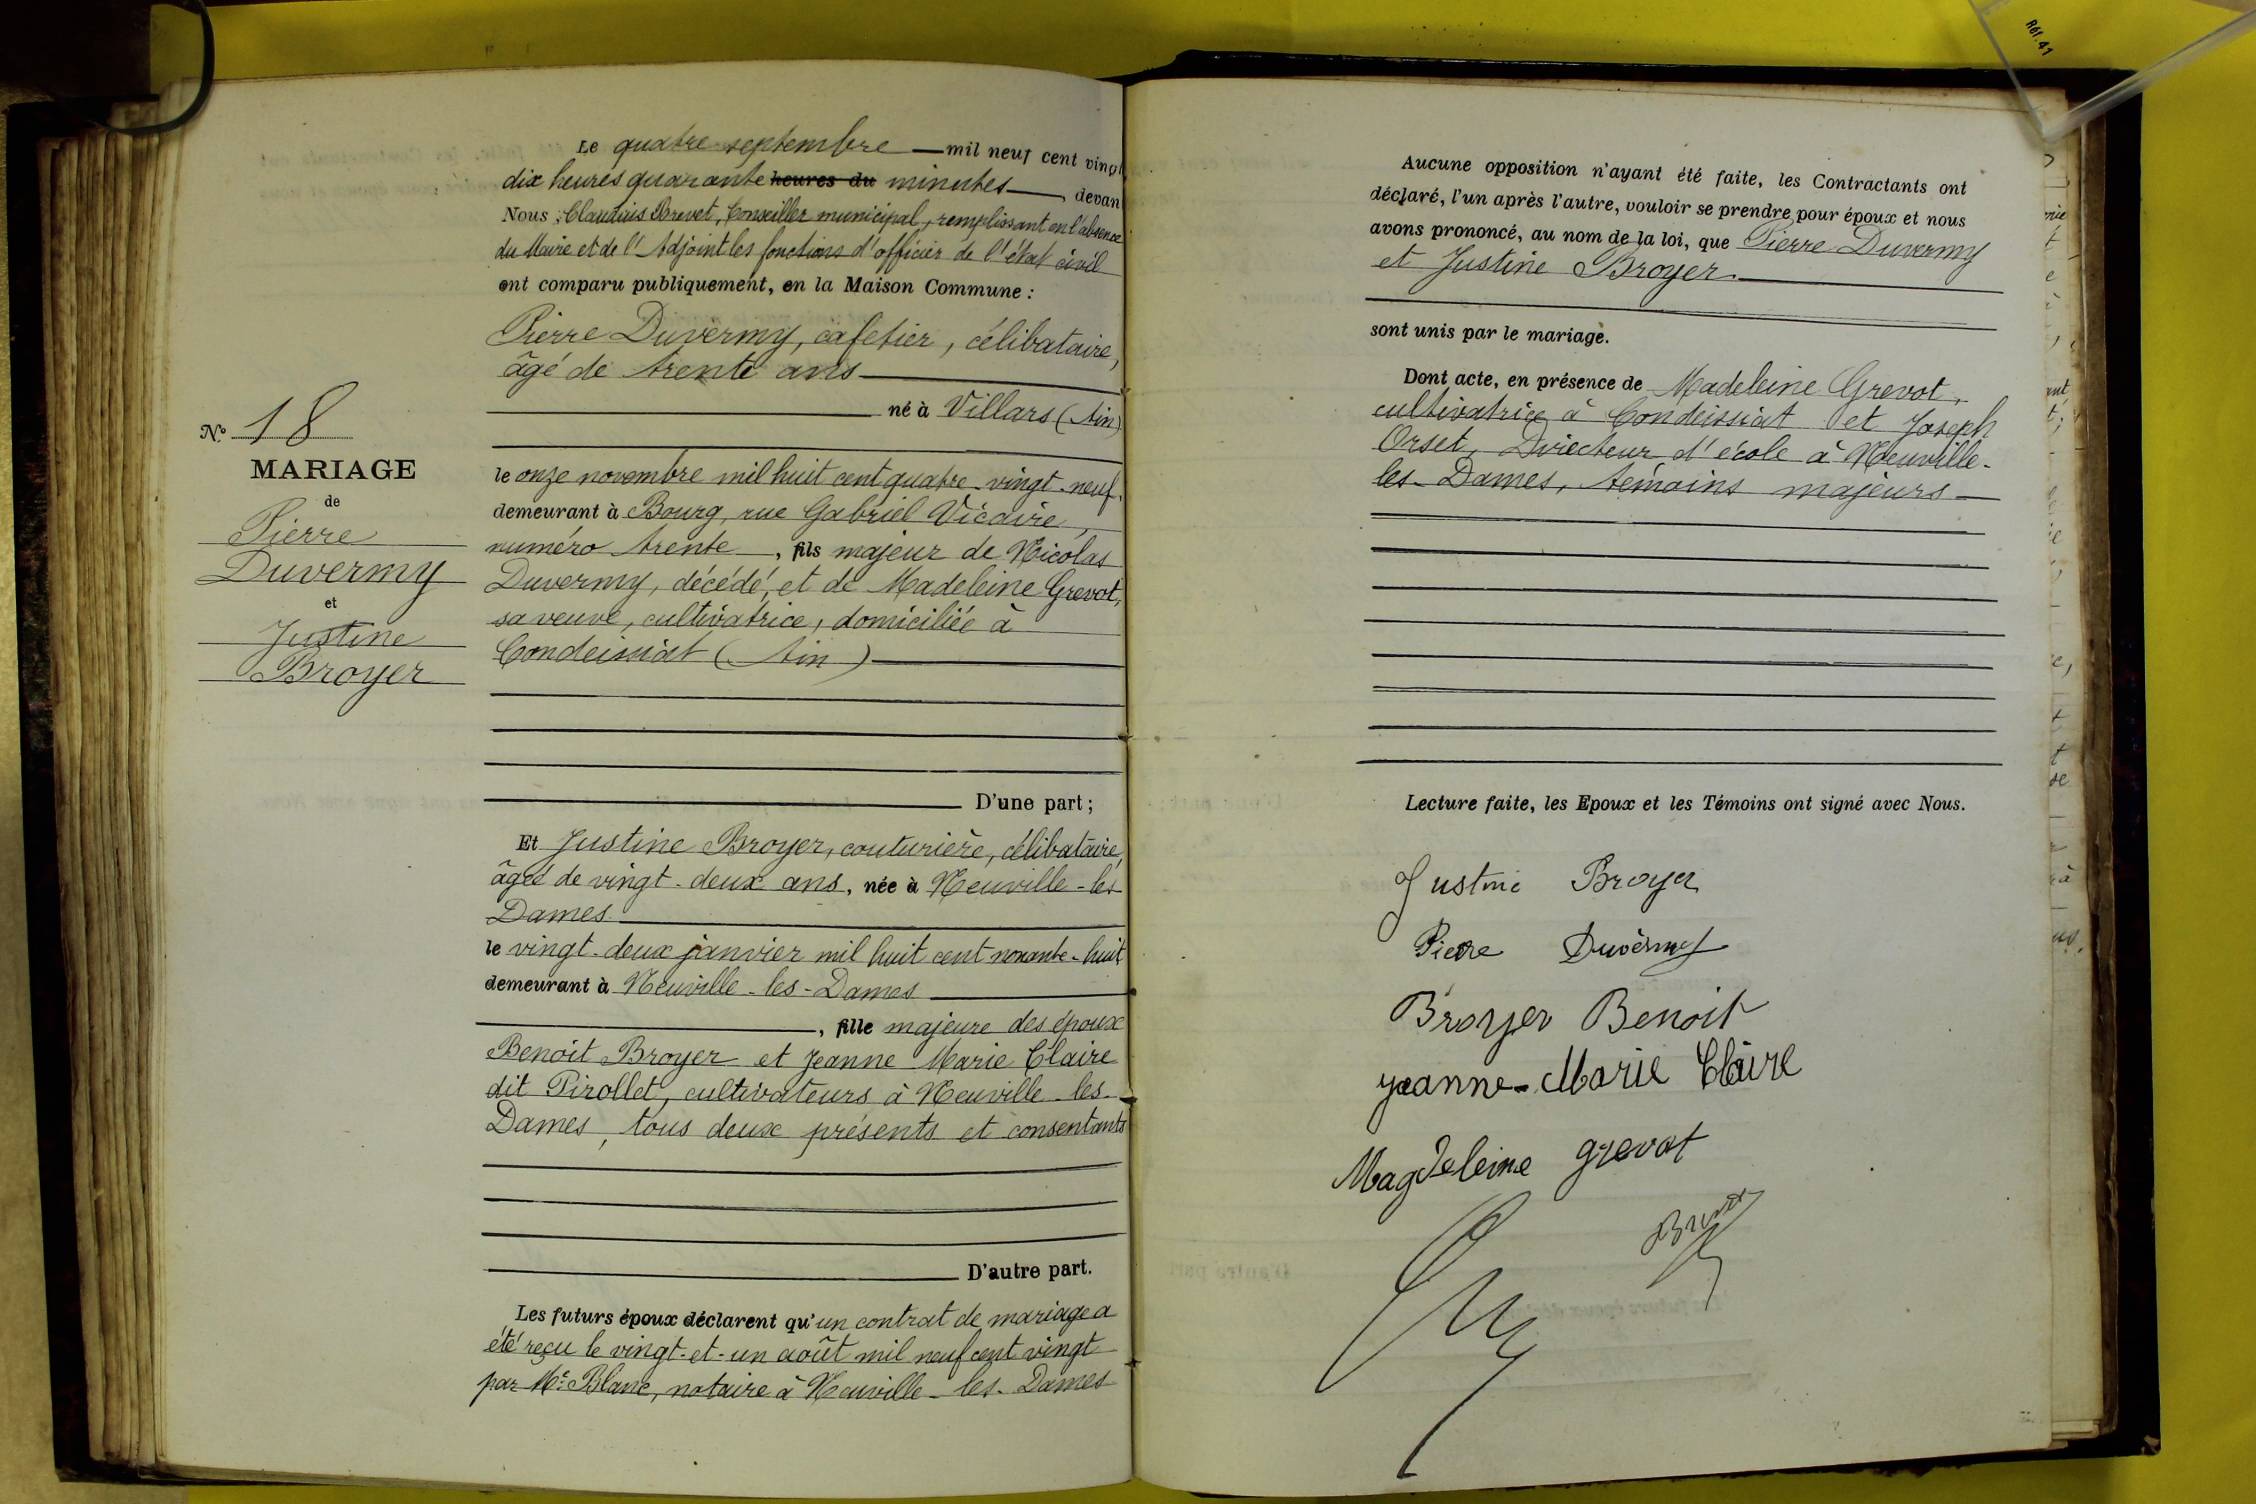 Le quatre septembre mil neuf cent vingt
dix heures quarante heures du minutes, devan
Nous, Claudius Brevet, Conseiller municipal, remplissant en l'absence
du Maire et de l'Adjoint les fonctions d'officier de l'état civil
ont comparu publiquement, en la Maison Commune :
Pierre Duvermy, cafetier, célibataire,
âgé de trente ans
né à Villars (Ain)
le onze novembre mil huit cent quatre-vingt-neuf,
demeurant à Bourg, rue Gabriel Vicaire,
numéro trente, fils majeur de Nicolas
Duvermy, décédé, et de Madeleine Grevot,
sa veuve, cultivatrice, domiciliée à
Condeissiat (Ain)
D'une part ;
Et Justine Broyer, couturière, célibataire,
âgée de vingt-deux ans, née à Neuville-les
Dames
le vingt-deux janvier mil huit cent nonante-huit
demeurant à Neuville-les-Dames
, fille majeure des époux
Benoit Broyer et Jeanne Marie Claire
dit Pirollet, cultivateurs à Neuville-les-
Dames, tous deux présents et consentants
D'autre part.
Les futurs époux déclarent qu'un contrat de mariage a
été reçu le vingt-et-un août mil neuf cent vingt
par Me Blanc, notaire à Neuville-les-Dames
No 18
MARIAGE
de
Pierre
Duvermy
et
Justine
Broyer
Aucune opposition n'ayant été faite, les Contractants ont
déclaré, l'un après l'autre, vouloir se prendre pour époux et nous
avons prononcé, au nom de la loi, que Pierre Duvermy
et Justine Broyer
sont unis par le mariage.
Dont acte, en présence de Madeleine Grevot,
cultivatrice à Condeissiat et Joseph
Orset, Directeur d'école à Neuville-
les-Dames, témoins majeurs
Lecture faite, les Epoux et les Témoins ont signé avec Nous.
Justine Broyer
Pierre Duvermy
Broyer Benoit
Jeanne-Marie Claire
Magdeleine grevot
Brevet
Réf. 41